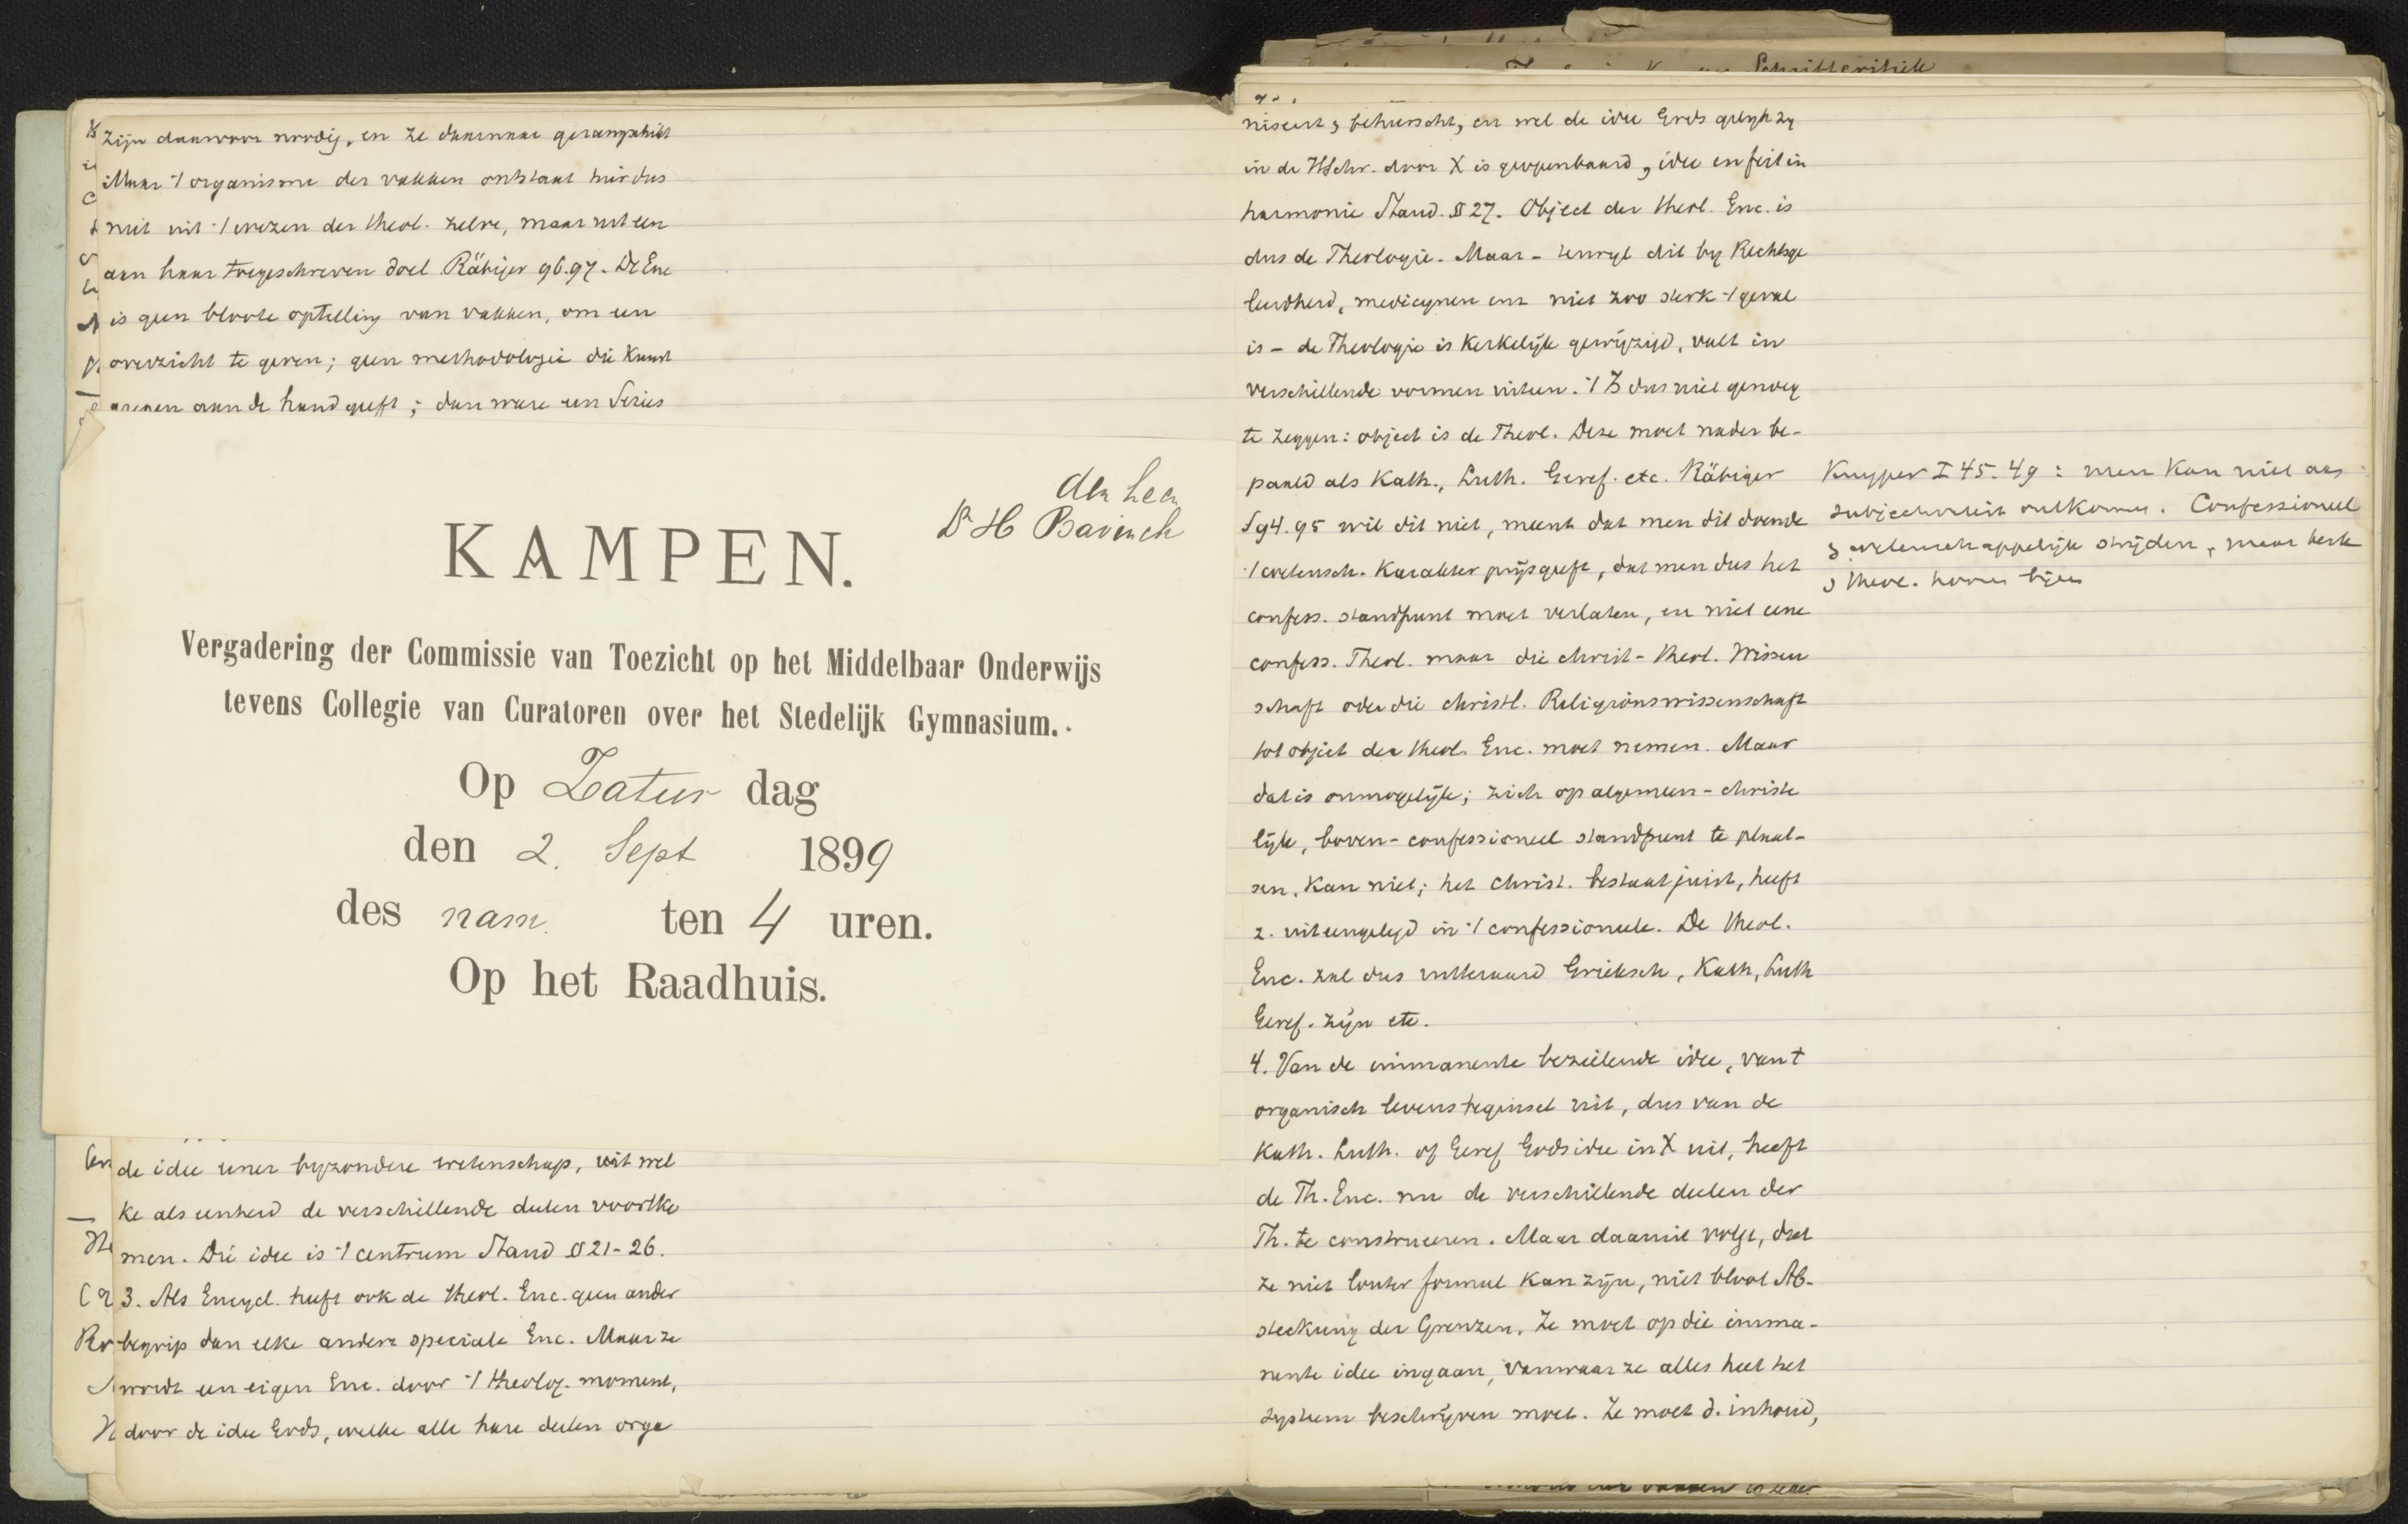 zijn daarvoor noodig, en ze daarnaar gerangschikt
Maar '/ organisme der vakken ontstaat hier dus
niet uit '/ wezen der theol. zelve, maar uit een
aan haar toegeschreven doel Räbiger 96.97. De Enc
is geen bloote optelling van vakken, om een
overzicht te geven; geen methodologie die kunst
grepen aan de hand geeft; dan ware een Series
den heer
Dr H Bavinck
KAMPEN.
Vergadering der Commissie van Toezicht op het Middelbaar Onderwijs
tevens Collegie van Curatoren over het Stedelijk Gymnasium.
Op Zatur dag
den 2. Sept 1899
des nam. ten 4 uren.
Op het Raadhuis.
de idee eener byzondere wetenschap, uit wel
ke als eenheid de verschillende deelen voortko
men. Die idee is '/ centrum Staud. § 21-26.
3. Als Encycl. heeft ook de theol. Enc. geen ander
begrip dan elke andere speciale Enc. Maar ze
wordt een eigen Enc. door '/ theolog. moment,
door de idee Gods, welke alle hare deelen orga
niseert, beheerscht, en wel de idee Gods gelyk zy
in de HSchr. door X is geopenbaard, idee en feit in
harmonie Staud. § 27. Object der theol. Enc. is
dus de Theologie. Maar - terwyl dit by Rechtsge
leerdheid, medicynen enz niet zoo sterk '/ geval
is - de Theologie is Kerkelijk gewijzigd, valt in
verschillende vormen uiteen. '/ Is dus niet genoeg
te zeggen: object is de Theol. Deze moet nader be-
paald als Kath., Luth. Geref. etc. Räbiger
S 94.95 wil dit niet, meent dat men dit doende
'/ wetensch. Karakter prijsgeeft, dat men dus het
confess. standpunt moet verlaten, en niet eene
confess. Theol. maar die christ-theol. Wissen
schaft oder die christl. Religionswissenschaft
tot object der theol. Enc. moet nemen. Maar
dat is onmogelijk; zich op algemeen-christe
lijk, boven-confessioneel standpunt te plaat-
sen, kan niet; het christ. bestaat juist, heeft
z. uiteengelegd in '/ confessioneele. De theol.
Enc. zal dus uitteraard Grieksch, Kath, Luth
Geref. zijn etc.
4. Van de immanente bezielende idee, van t
organisch levensbeginsel uit, dus van de
Kath. Luth. of Geref Godsidee in X uit, heeft
de Th. Enc. nu de verschillende deelen der
Th. te construeeren. Maar daaruit volgt, dat
ze niet louter formeel kan zijn, niet bloot Ab-
steckung der Grenzen. Ze moet op die imma-
nente idee ingaan, vanwaar ze alles heel het
systeem beschrijven moet. Ze moet d. inhoud,
Kuyper I 45. 49: men kan niet aan
subjectiviteit ontkomen. Confessioneel
wetenschappelijk strijden, maar kerk
theol. horen bijeen
Schriftkritiek